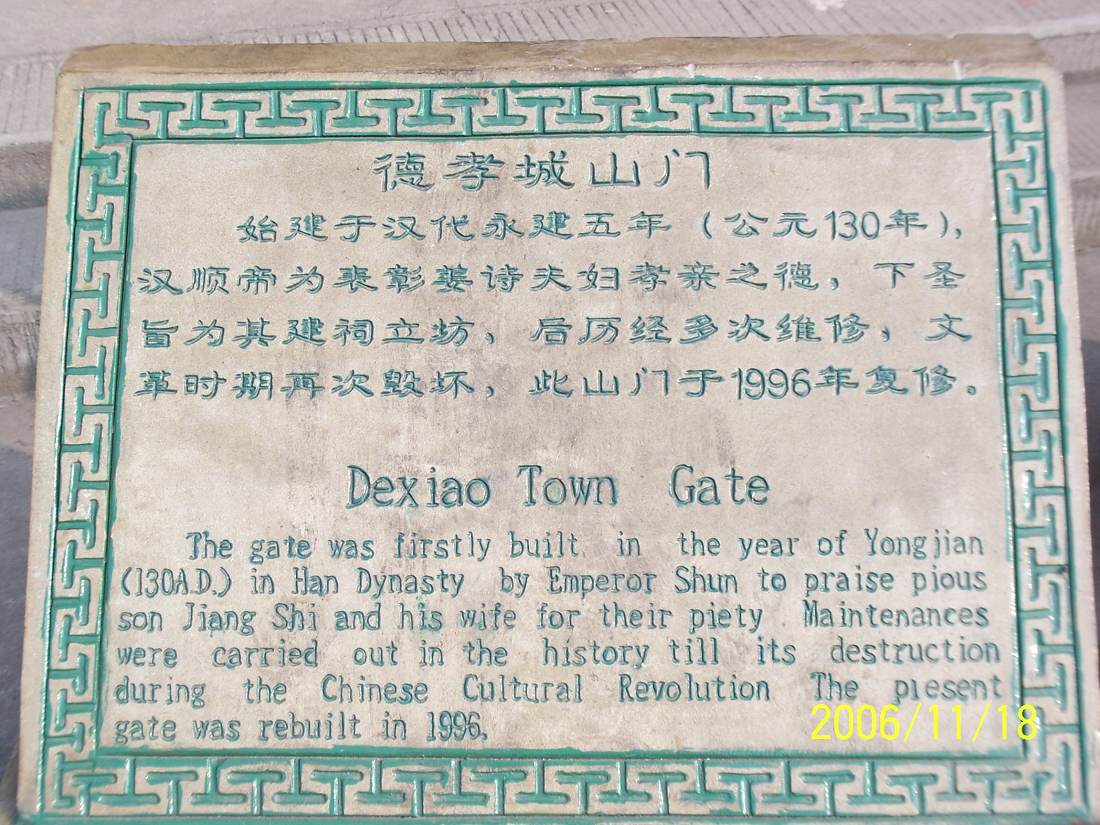 德孝城山门
始建于汉代永建五年（公元130年），
汉顺帝为表彰姜诗夫妇孝亲之德，下圣
旨为其建祠立坊，后历经多次维修，文
革时期再次毁坏，此山门于1996年复修。
Dexiao Town Gate
The gate was firstly built in the year of Yongjian
(130A.D.) in Han Dynasty by Emperor Shun to praise pious
son Jiang Shi and his wife for their piety. Maintenances
were carried out in the history till its destruction
during the Chinese Cultural Revolution The present
gate was rebuilt in 1996.
2006/11/18